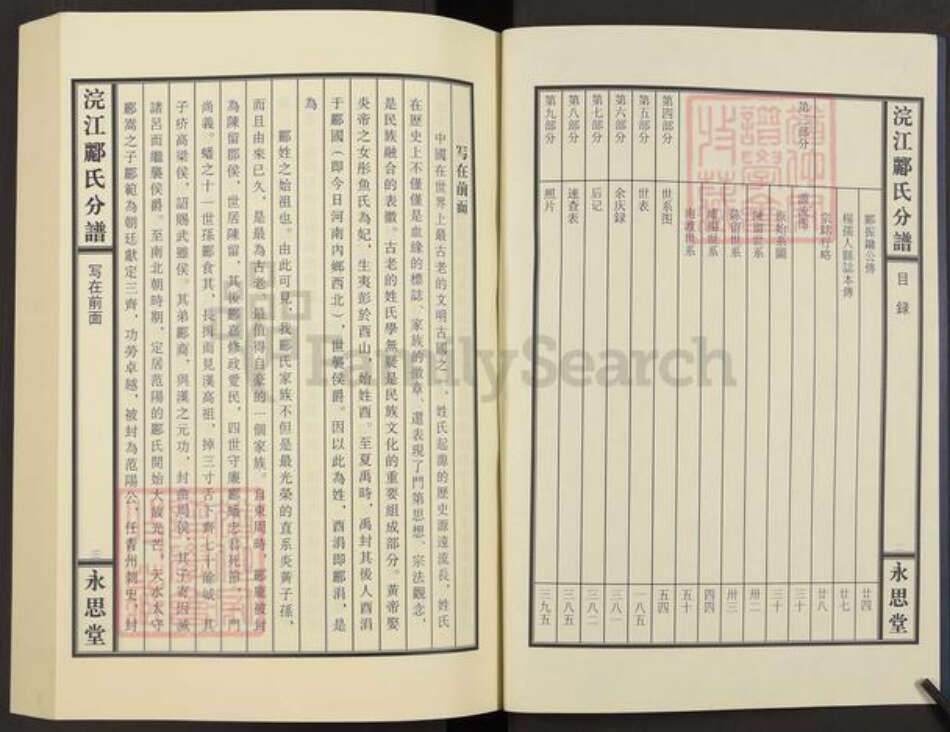 浣江酈氏分譜
目录
永思堂
酈振鏞公傳 廿四
楊孫人縣誌本傳 廿七
宗銘行略 廿八
三十
世系圖 三十
陳留世系 卅二
世系 卅三
世系 四四
南渡世系 五十
第三部分
第四部分 世系图 五四
第五部分 世表 一八五
第六部分 余庆録 三八一
第七部分 后记 三八二
第八部分 速查表 三八五
第九部分 照片 三九五
写在前面
中國在世界上最古老的文明古國之一，姓氏起源的歷史源遠流長，姓氏
在歷史上不僅僅是血緣的標誌、家族的徽章，還表現了門第思想、宗法觀念，
是民族融合的表徵。古老的姓氏學無疑是民族文化的重要組成部分。黃帝娶
炎帝之女彤魚氏為妃，生夷彭於酉山，始姓酉。至夏禹時，禹封其後人酉涓
于酈國（即今日河南內鄉西北），世襲侯爵。因以此為姓，酉涓即酈涓，是
為
酈姓之始祖也。由此可見，我酈氏家族不但是最光榮的直系炎黃子孫，
而且由來已久，是最為古老、最值得自豪的一個家族。自東周時，酈魔被封
為陳留郡侯，世居陳留，其後酈嘉修政愛民，四世守廉酈蟠忠君死節，一門
尚義。蟠之十一世孫酈食其，長揖而見漢高祖，掉三寸舌下齊七十餘城，其
子疥高梁侯，詔賜武遂侯。其弟酈商，與漢之元功，封曲周侯，其子寄因滅
諸呂而繼襲侯爵。至南北朝時期，定居范陽的酈氏開始大放光芒。天水太守
酈嵩之子酈範為朝廷獻定三齊，功勞卓越，被封為范陽公，任青州刺史，封
浣江酈氏分譜
写在前面
三
永思堂
FamilySearch